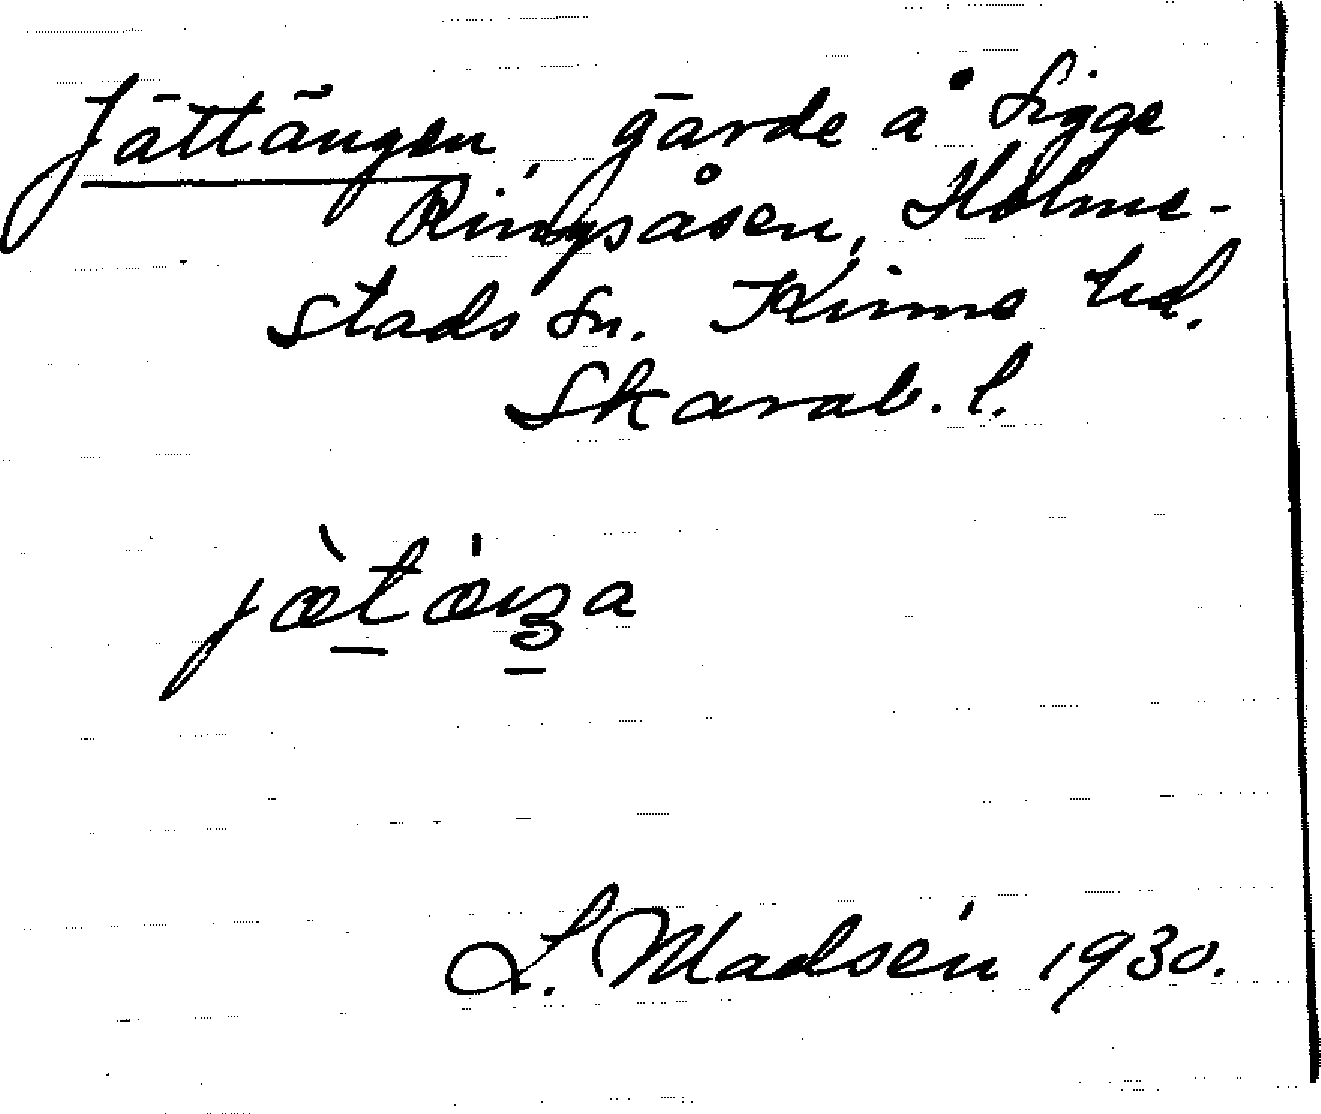 Jättängen, gärde å Sigge
Ringsåsen, Holme-
stads Sn. Kinne hd.
Skarab. l.
jæ̀tǽŋa
L. Madsén 1930.